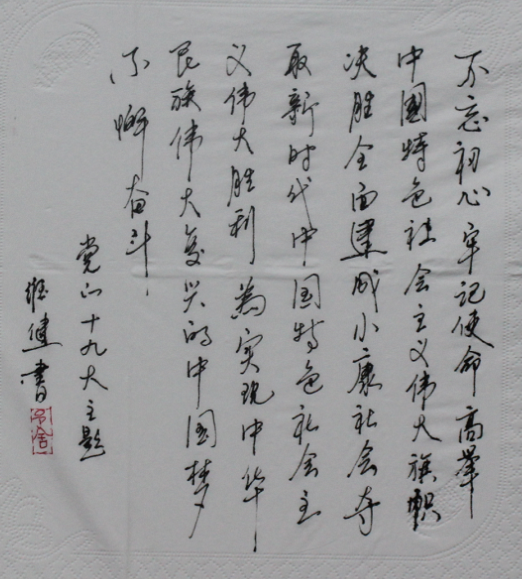 不忘初心牢记使命高举
中国特色社会主义伟大旗帜
决胜全面建成小康社会夺
取新时代中国特色社会主
义伟大胜利为实现中华
民族伟大复兴的中国梦
不懈奋斗
党的十九大主题
健書